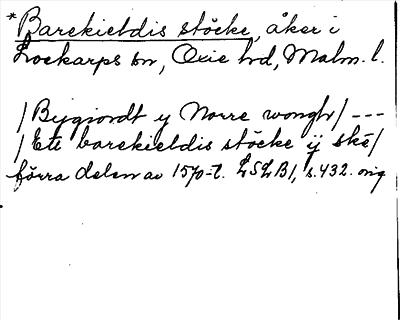 *Barekieldis stöcke, åker i
Lockarps sn, Oxie hd, Malm. l.
/Bygiordt y Norre wongh/ ---
/Ett barekieldis stöcke ÿ ske/
förra delen av 1570-t. LSLB1, s. 432. orig